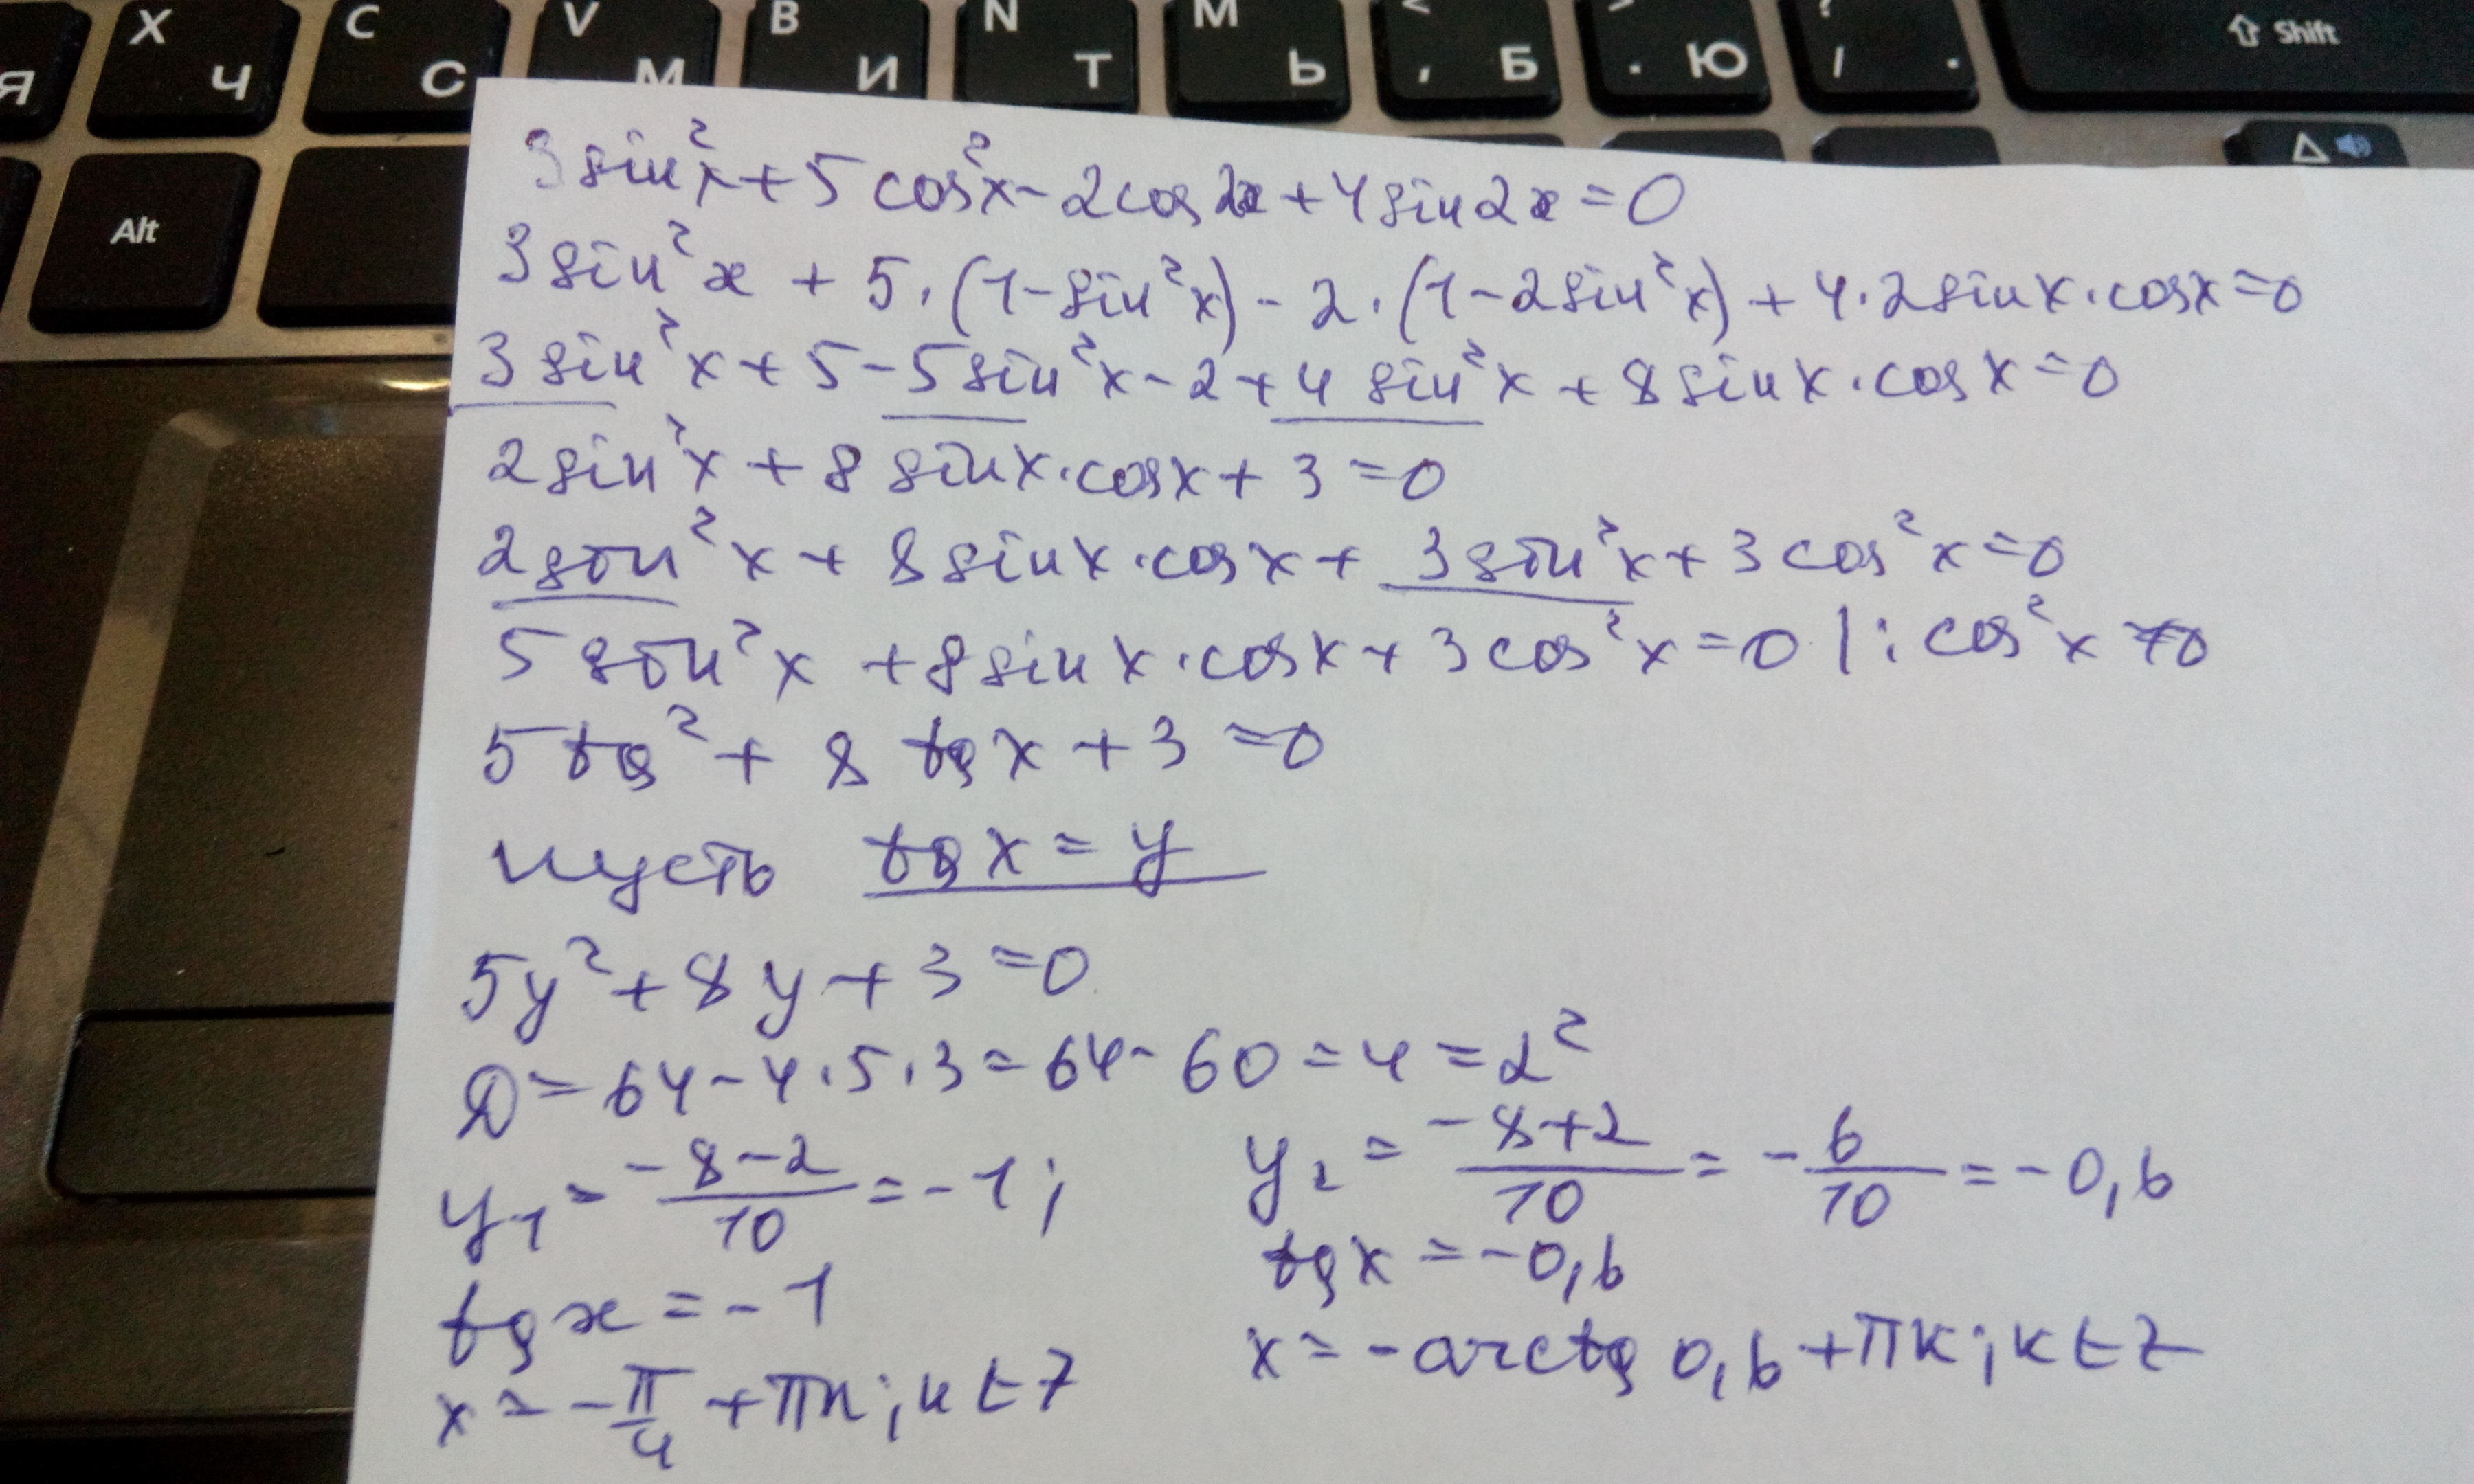 X Ч C С V М B И N Т M Ь < , Б > . Ю ? / . ⇧ Shift
Alt
3sin²x+5cos²x-2cos2x+4sin2x=0
3sin²x + 5·(1-sin²x)-2·(1-2sin²x)+4·2sinx·cosx=0
3sin²x+5-5sin²x-2+4sin²x+8sinx·cosx=0
2sin²x+8sinx·cosx+3=0
2sin²x+8sinx·cosx+3sin²x+3cos²x=0
5sin²x+8sinx·cosx+3cos²x=0 |: cos²x≠0
5tg²+8tgx+3=0
пусть tgx=y
5y²+8y+3=0
D=64-4·5·3=64-60=4=2²
y₁=(-8-2)/10=-1; y₂=(-8+2)/10=-6/10=-0,6
tgx=-1 tgx=-0,6
x=-π/4+πn; n∈Z x=-arctg 0,6+πk; k∈Z